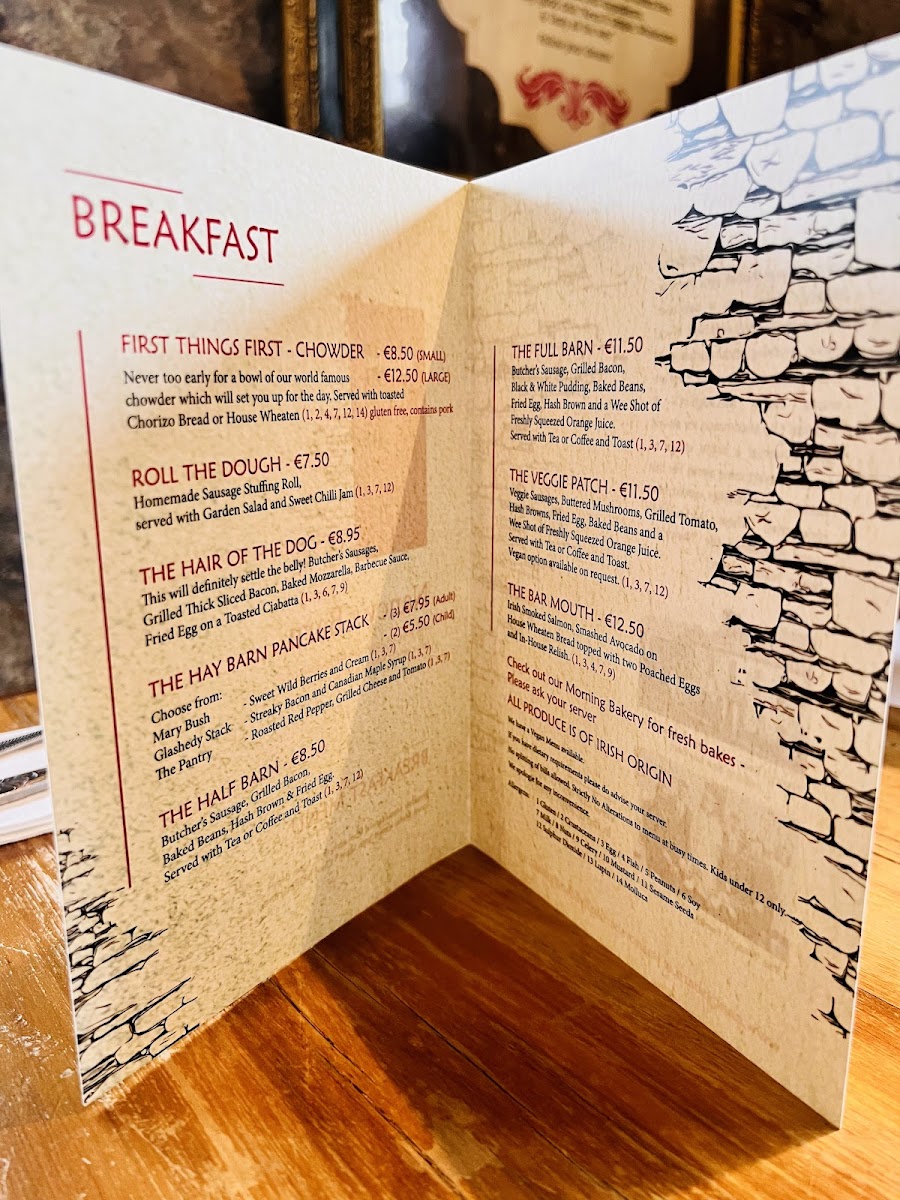 BREAKFAST
FIRST THINGS FIRST - CHOWDER - €8.50 (SMALL)
- €12.50 (LARGE)
Never too early for a bowl of our world famous
chowder which will set you up for the day. Served with toasted
Chorizo Bread or House Wheaten (1, 2, 4, 7, 12, 14) gluten free, contains pork
ROLL THE DOUGH - €7.50
Homemade Sausage Stuffing Roll,
served with Garden Salad and Sweet Chilli Jam (1, 3, 7, 12)
THE HAIR OF THE DOG - €8.95
This will definitely settle the belly! Butcher's Sausages,
Grilled Thick Sliced Bacon, Baked Mozzarella, Barbecue Sauce,
Fried Egg on a Toasted Ciabatta (1, 3, 6, 7, 9)
THE HAY BARN PANCAKE STACK - (3) €7.95 (Adult)
- (2) €5.50 (Child)
Choose from:
Mary Bush - Sweet Wild Berries and Cream (1, 3, 7)
Glashedy Stack - Streaky Bacon and Canadian Maple Syrup (1, 3, 7)
The Pantry - Roasted Red Pepper, Grilled Cheese and Tomato (1 ,3, 7)
THE HALF BARN - €8.50
Butcher's Sausage, Grilled Bacon,
Baked Beans, Hash Brown & Fried Egg.
Served with Tea or Coffee and Toast (1, 3, 7, 12)
THE FULL BARN - €11.50
Butcher's Sausage, Grilled Bacon,
Black & White Pudding, Baked Beans,
Fried Egg, Hash Brown and a Wee Shot of
Freshly Squeezed Orange Juice.
Served with Tea or Coffee and Toast (1, 3, 7, 12)
THE VEGGIE PATCH - €11.50
Veggie Sausages, Buttered Mushrooms, Grilled Tomato,
Hash Browns, Fried Egg, Baked Beans and a
Wee Shot of Freshly Squeezed Orange Juice.
Served with Tea or Coffee and Toast.
Vegan option available on request. (1, 3, 7, 12)
THE BAR MOUTH - €12.50
Irish Smoked Salmon, Smashed Avocado on
House Wheaten Bread topped with two Poached Eggs
and In-House Relish. (1, 3, 4, 7, 9)
Check out our Morning Bakery for fresh bakes -
Please ask your server
ALL PRODUCE IS OF IRISH ORIGIN
We have a Vegan Menu available.
If you have dietary requirements please do advise your server.
No splitting of bills allowed. Strictly No Alterations to menu at busy times. Kids under 12 only.
We apologise for any inconvenience.
Allergens: 1 Gluten / 2 Crustaceans / 3 Egg / 4 Fish / 5 Peanuts / 6 Soy
7 Milk / 8 Nuts / 9 Celery / 10 Mustard / 11 Sesame Seeds
12 Sulphur Dioxide / 13 Lupin / 14 Molluscs